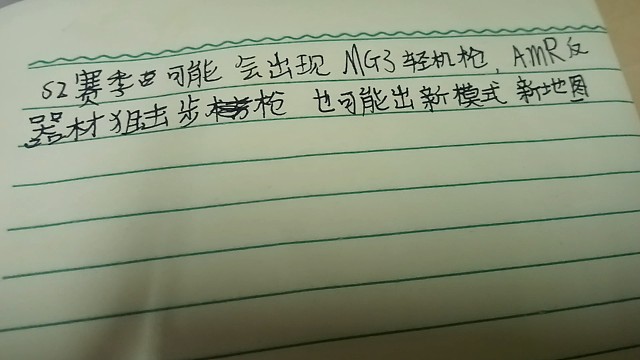 S2赛季可能会出现MG3轻机枪,AMR反
器材狙击步枪 也可能出新模式 新地图